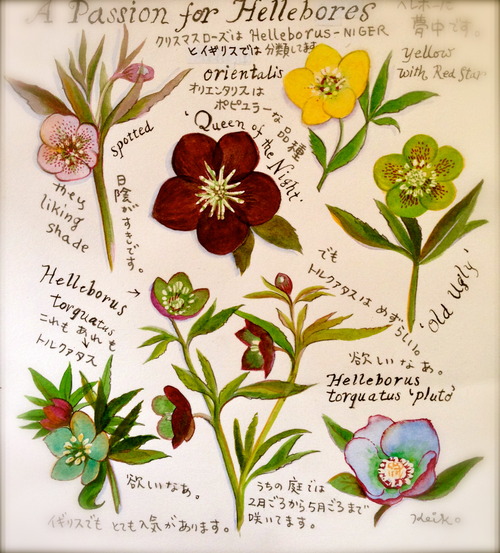 A Passion for Hellebores
クリスマスローズは Helleborus-NIGER
とイギリスでは 分類してます
ヘレボーに
夢中です。
yellow
with Red Star
orientalis
オリエンタリスは
ポピュラーな品種
'Queen of the Night'
spotted
they
liking
shade
日陰がすきです。
'Old Ugly'
でも
トルクアタスは めずらしい。
欲しいなあ。
Helleborus
torquatus
これも あれも
トルクアタス
Helleborus
torquatus 'pluto'
欲しいなあ。
イギリスでも とても人気があります。
うちの 庭では
2月ごろから5月ごろまで
咲いてます。
Keiko